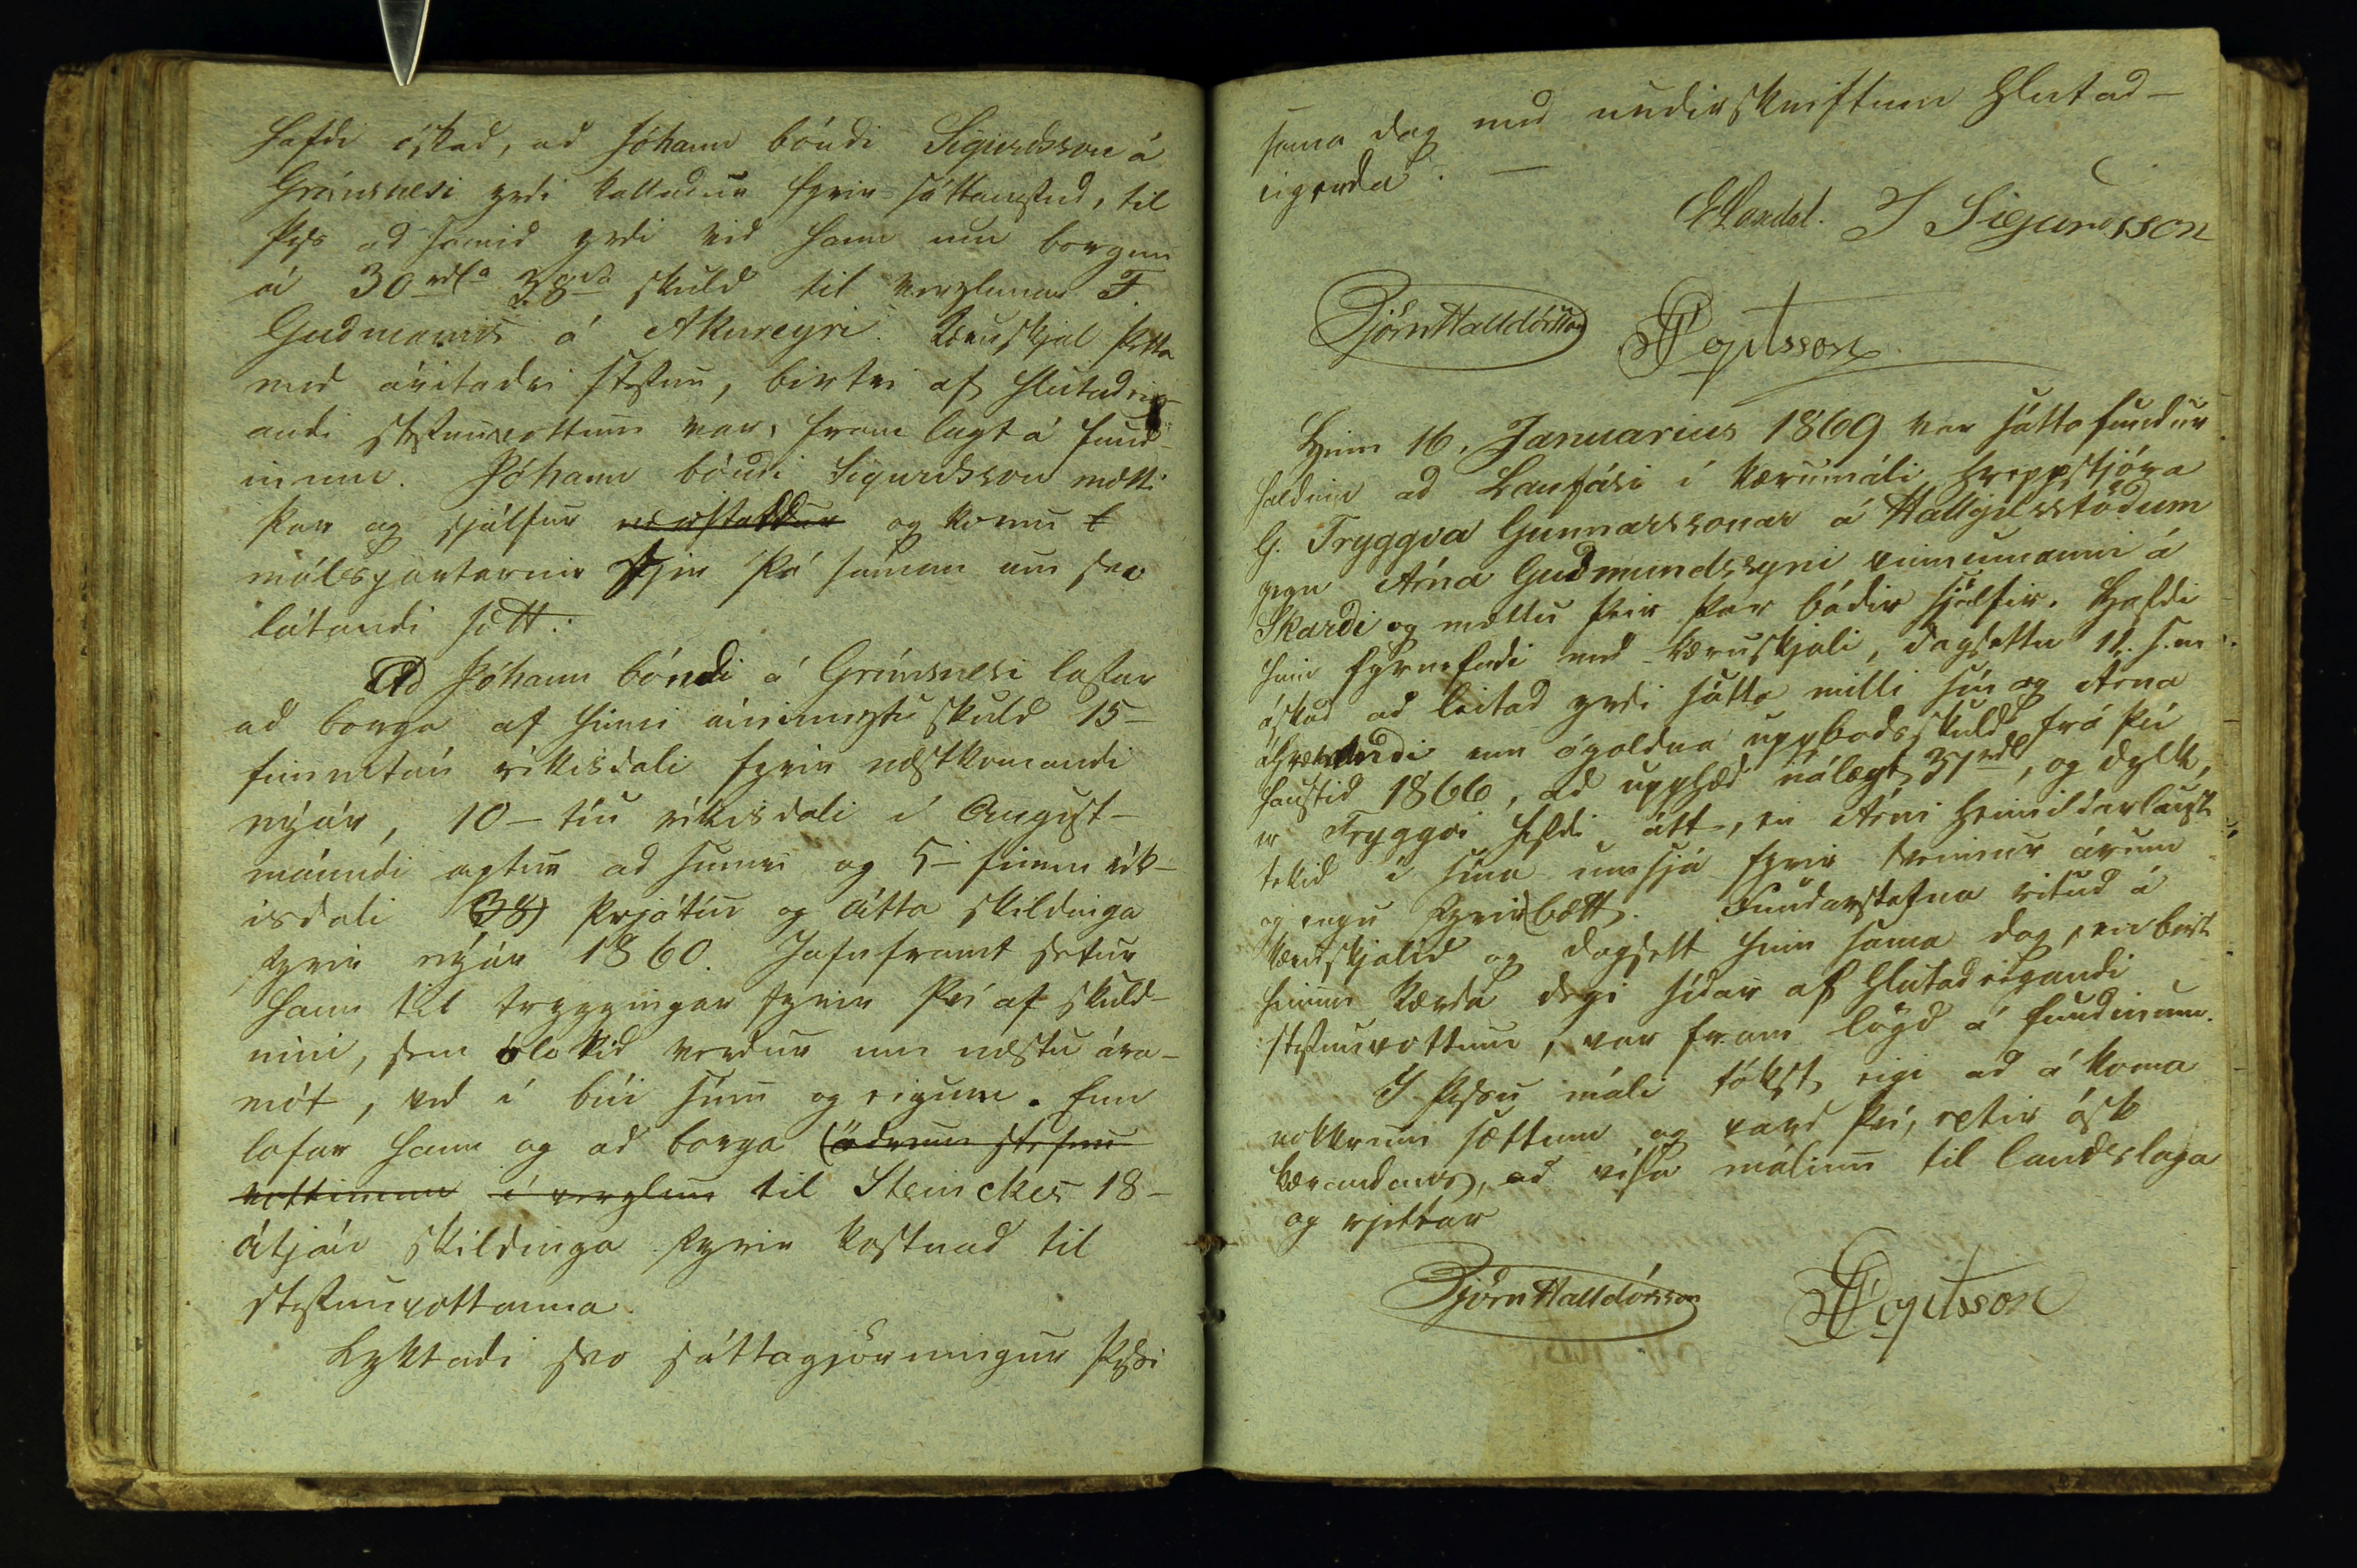 hafdi óskad, ad Jóhann bóndi Sigurdsson á
Grímsnesi yrdi kalladur fyrir sáttanefnd, til
þess ad samid yrdi vid hann um borgun
á 30 rdla 38 sk skuld til verzlunar F.
Gudmanns á Akureyri. Kæruskjal þetta
med áritadri stefnu, birtri af hlutadeig-
andi stefnuvottum var, fram lagt á fund-
inum. Jóhann bóndi Sigurdsson mætti
þar og sjálfur og komu
málspartarnir sjer þá saman um svo
látandi sátt:
Ad Jóhann bóndi á Grímsnesi lofar
ad borga af sinni áminnstu skuld 15-
fimmtán ríkisdali fyrir næstkomandi
nýár, 10 - tíu ríkisdali í August-
mánudi aptur ad sumri og 5 - fimm rík-
isdali (38) þrjátíu og átta skildinga
fyrir nýár 1860. Jafnframt setur
hann til tryggingar fyrir því af skuld-
inni, sem ólokid verdur um næstu ára-
mót, ved í búi sínu og eigum. Enn
lofar hann og ad borga (ödrum stefnu
vottinum í verzlun til Steinckes 18-
átján skildinga fyrir kostnad til
stefnuvottanna.
Lyktadi svo sáttagjörningur þessi
sama dag med undirskriftum hlutad-
eigenda. -
J Sigurdsson
Björn Halldórsson
Hinn 16. Januarius 1869 var sáttafundur
haldinn ad Laufási í kærumáli hreppstjóra
G. Tryggva Gunnarssonar á Hallgilsstödum
gegn Árna Gudmundssyni vinnumanni á
Skardi og mættu þeir þar bádir sjálfir. Hafdi
hinn fyrnefndi med kæruskjali, dagsettu 11. s.m.
óskad ad leitad yrdi sátta milli sín og Árna
áhrærandi um ógoldna uppbodsskuld frá því
haustid 1866, ad upphæd nálægt 37 rdl, og dylk,
er Tryggvi hefdi átt, en Árni heimildarlaust
tekid í sína umsjá fyrir tveimur árum
og engu fyrir bætt. Fundarstefna ritud á
kæruskjalid og dagsett hinn sama dag, en birt
hinum kærda degi sídar af hlutadeigandi
stefnuvottum, var fram lögd á fundinum.
Í þessu máli tókst eigi ad á koma
nokkrum sættum og vard því, eptir ósk
kærandans, ad vísa málinu til landslaga
og rjettar
Björn Halldórsson